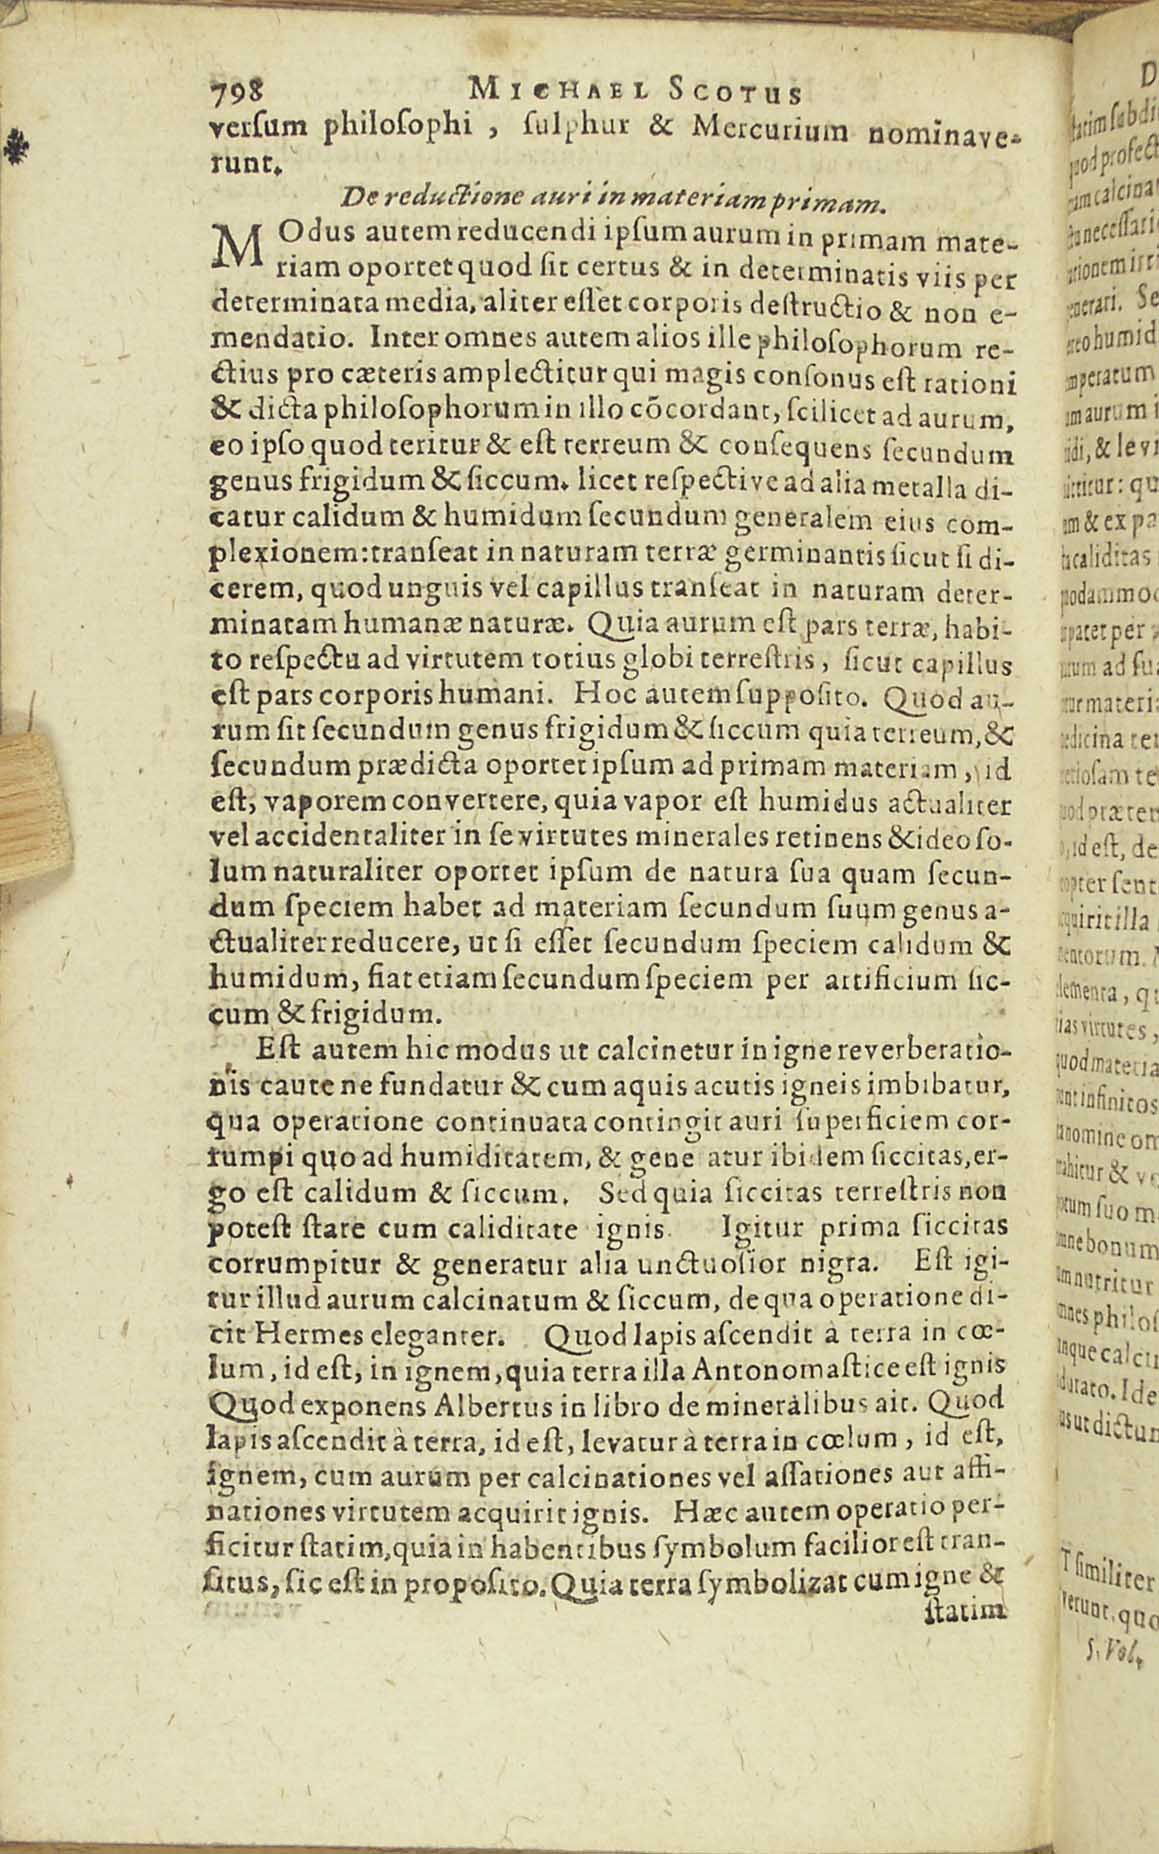 798 MICHAEL SCOTUS
verſum philoſophi , ſulphur & Mercurium nominave-
runt.
De reductione auri in materiam primam.
MOdus autem reducendi ipſum aurum in primam mate-
riam oportet quod ſit certus & in determinatis viis per
determinata media, aliter eſſet corporis deſtructio & non e-
mendatio. Inter omnes autem alios ille philoſophorum re-
ctius pro cæteris amplectitur qui magis conſonus eſt rationi
& dicta philoſophorum in illo cõcordant, ſcilicet ad aurum,
eo ipſo quod teritur & eſt terreum & conſequens ſecundum
genus frigidum & ſiccum. licet reſpective ad alia metalla di-
catur calidum & humidum ſecundum generalem eius com-
plexionem: tranſeat in naturam terræ germinantis ſicut ſi di-
cerem, quod unguis vel capillus tranſeat in naturam deter-
minatam humanæ naturæ. Quia aurum eſt pars terræ, habi-
to reſpectu ad virtutem totius globi terreſtris, ſicut capillus
eſt pars corporis humani. Hoc autem ſuppoſito. Quod au-
rum ſit ſecundum genus frigidum & ſiccum quia terreum, &
ſecundum prædicta oportet ipſum ad primam materiam, id
eſt, vaporem convertere, quia vapor eſt humidus actualiter
vel accidentaliter in ſe virtutes minerales retinens & ideo ſo-
lum naturaliter oportet ipſum de natura ſua quam ſecun-
dum ſpeciem habet ad materiam ſecundum ſuum genus a-
ctualiter reducere, ut ſi eſſet ſecundum ſpeciem calidum &
humidum, fiat etiam ſecundum ſpeciem per artificium ſic-
cum & frigidum.
Eſt autem hic modus ut calcinetur in igne reverberatio-
nis caute ne fundatur & cum aquis acutis igneis imbibatur,
qua operatione continuata contingit auri ſuperficiem cor-
rumpi quo ad humiditatem, & gene atur ibidem ſiccitas, er-
go eſt calidum & ſiccum. Sed quia ſiccitas terreſtris non
poteſt ſtare cum caliditate ignis. Igitur prima ſiccitas
corrumpitur & generatur alia unctuoſior nigra. Eſt igi-
tur illud aurum calcinatum & ſiccum, de qua operatione di-
cit Hermes eleganter. Quod lapis aſcendit à terra in cœ-
lum, id eſt, in ignem, quia terra illa Antonomaſtice eſt ignis
Quod exponens Albertus in libro de mineralibus ait. Quod
lapis aſcendit à terra, id eſt, levatur à terra in cœlum, id eſt,
ignem, cum aurum per calcinationes vel aſſationes aut affi-
nationes virtutem acquirit ignis. Hæc autem operatio per-
ficitur ſtatim, quia in habentibus ſymbolum facilior eſt tran-
ſitus, ſic eſt in propoſito. Quia terra ſymbolizat cum igne &
ſtatim